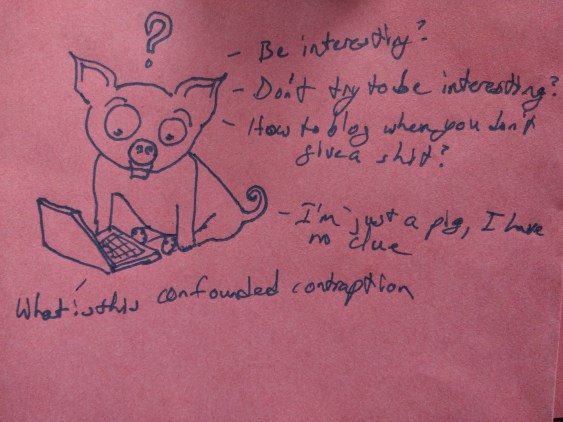 ?
- Be interesting?
- Don't try to be interesting?
- How to blog when you don't
give a shit?
- I'm just a pig, I have
no clue
What is this confounded contraption